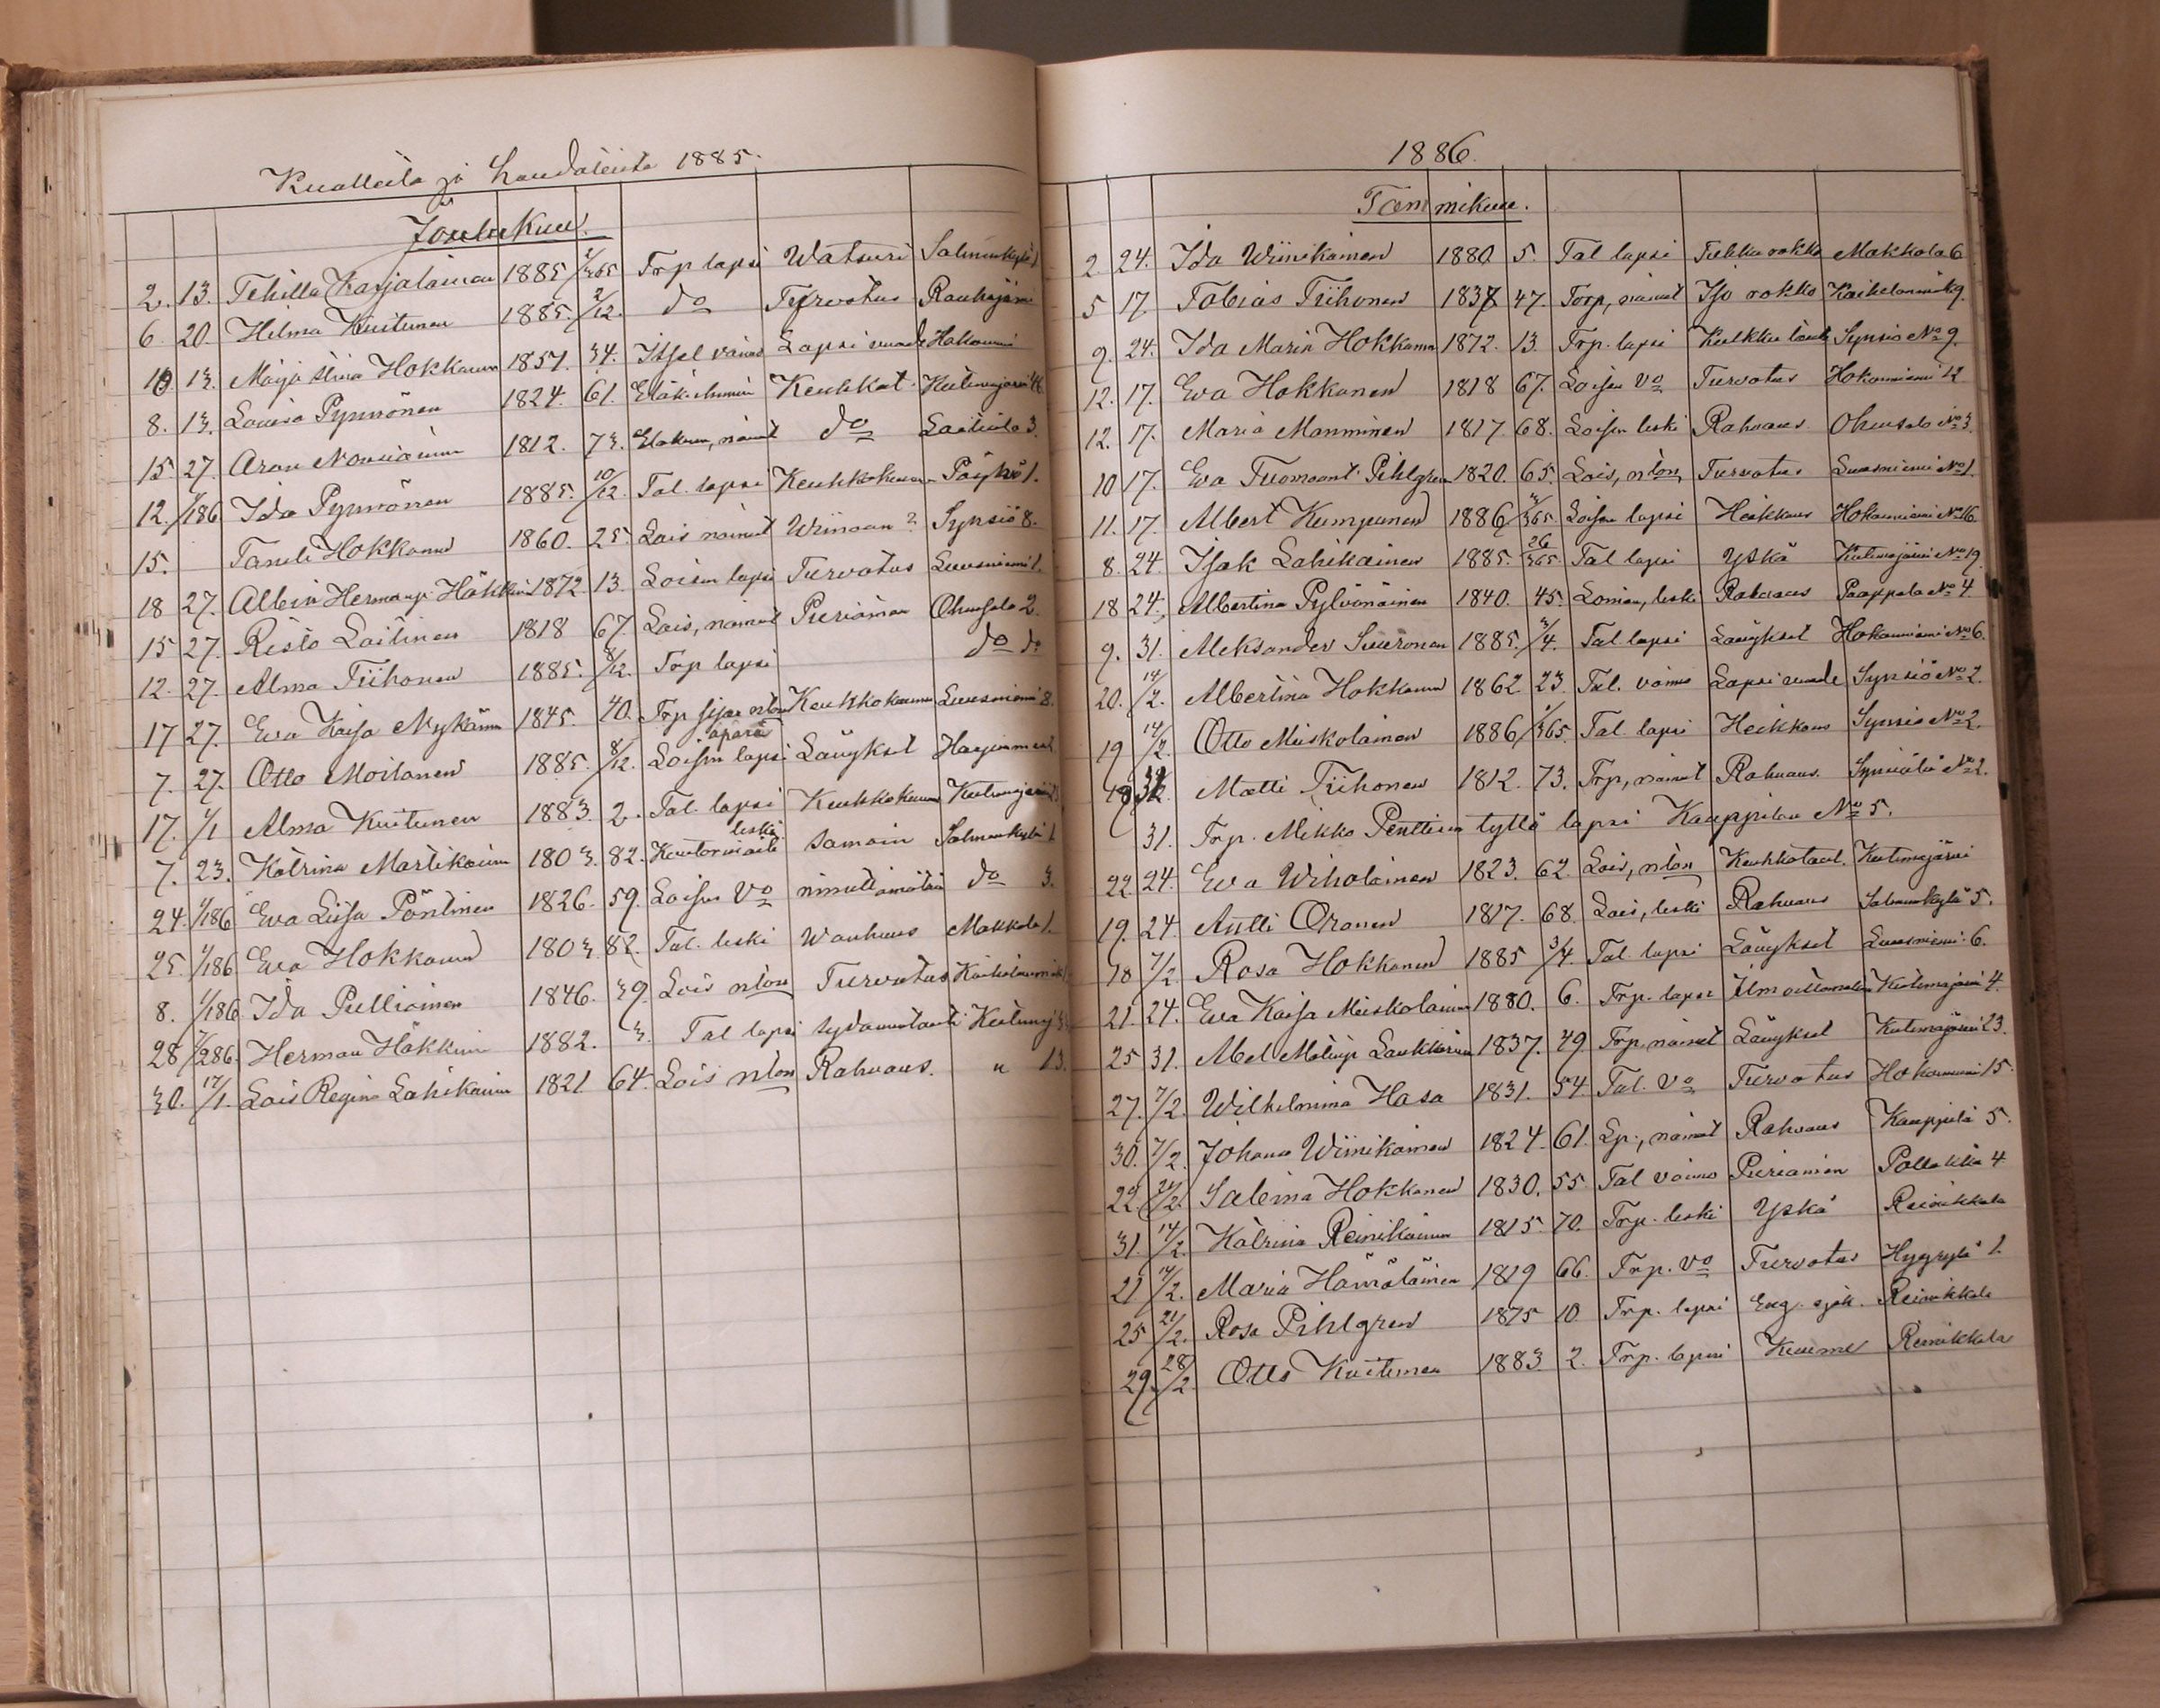 Kuolleita ja Haudatuita 1885.
Joulukuu.
2. 13. Tehilla Karjalainen 1885 /365 Trp lapsi Watsuri Salmenkylä 1
6. 20. Hilma Kuitunen 1885. 2/12. do Turvotus Rauhajärvi
10. 13. Maija Stina Hokkanen 1851. 34. Itsel vaimo Lapsi vuode Hokanniemi
8. 13. Lovisa Pynnönen 1824. 61. Keuhkot Kutemajärvi
15. 27. Aron Nousiainen 1812. 73. Eläkem, nainut do Laitiala 3.
12. 1/1 86 Ida Pynnönen 1885. 10/12. Tal. lapsi Keuhkokuume 1.
15. Taneli Hokkanen 1860. 25. Lois nainut Wiinaan? Synsiö 8.
18 27. Albin Hermanp. Häkkinen 1872. 13. Loisen lapsi Turvotus Luusniemi 1.
15 27. Risto Laitinen 1818 67. Lois, nainut Pieriäinen Ohensalo 2.
12. 27. Alma Tiihonen 1885. 8/12. Trp lapsi do do
17 27. Eva Kaisa Nykänen 1845. 40. Trp sisar nton Keuhkokuume Luusniemi 8.
7. 27. Otto Moilanen 1885. 8/12. Loisen äpärä lapsi Läuykset
17. 1/1 Alma Kuitunen 1883. 2. Tal. lapsi Keuhkokuume Kutemajärvi
7. 23. Katrina Martikainen 1803. 82. leski samoin Salmenkylä 1
24. 1/1 86 Eva Liisa Pöntinen 1826. 59. Loisen Vo nimittämätön do 3.
25. 1/1 86 Eva Hokkanen 1803. 82. Tal. leski Wanhuus Makkola 1.
8. 1/1 86 Ida Pulliainen 1846. 39. Lois nton Turvotus
28 7/2 86. Herman Häkkinen 1882. 3. Tal lapsi sydamentauti Kutemaj
30. 17/1. Lois Regina Lahikainen 1821 64. Lois nton Rahvaus. " 13.
1886.
Tammikuu.
2. 24. Ida Wiinikainen 1880. 5. Tal lapsi Tuhka rokko Makkola 6
5 17. Tobias Tiihonen 1838 47. Torp, nainut Iso rokko 9.
9. 24. Ida Maria Hokkanen 1872. 13. Trp. lapsi Kulkku tauti Synsiö No 9.
12. 17. Eva Hokkanen 1818 67. Loisen Vo Turvotus Hokanniemi 12
12. 17. Maria Manninen 1817. 68. Loisen leski Rahvaus Ohensalo No 3.
10 17. Eva Tuomaant. Pihlgren 1820. 65. Lois, nton Turvotus Luusniemi No 1.
11. 17. Albert Kumpunen 1886 /365 Loisen lapsi Heikkous Hokanniemi No 16.
8. 24. Isak Lahikainen 1885. 26/365. Tal lapsi Yskä Kutemajärvi No 19.
18 24. Albertina Pylvänäinen 1840. 45. leski Rahvaus Paappala No 4.
9. 31. Aleksander Suuronen 1885. 3/4. Tal. lapsi Läuykset Hokanniemi No 6.
20. 14/2. Albertina Hokkanen 1862. 23. Tal. vaimo Lapsi vuode Synsiö No 2.
19 14/2. Otto Miiskolainen 1886 1/365. Tal. lapsi Heikkous Synsiö No 2.
18 31. Matti Tiihonen 1812. 73. Trp, nainut Rahvaus. No 2.
31. Trp. Mikko Penttisen tyttö lapsi Kauppilan No 5.
22. 24. Eva Wiholainen 1823. 62. Lois, nton Keuhkotaut. Kutemajärvi
19. 24. Antti Oronen 1817. 68. Lois, leski Rahvaus Salmenkylä 5.
18 7/2. Rosa Hokkanen 1885 3/4. Tal. lapsi Läuykset Luusniemi 6.
21. 24. Eva Kaisa Miiskolainen 1880. 6. Trp. lapsi Ilmoittamaton Kutemajärvi 4.
25 31. Abel Matinp. Laukkarinen 1837. 49. Trp, nainut Läuykset Kutemajärvi 23.
27. 7/2. Wilhelmina Hasa 1831. 54 Tal. Vo Turvotus Hokanniemi 15.
30. 7/2. Johanna Wiinikainen 1824. 61. Lp., nainut Rahvaus Kauppila 5.
22. 21/2. Sabina Hokkanen 1830. 55. Tal vaimo Pieriainen Pollakka 4
31. 14/2. Katrina Reinikainen 1815. 70. Trp. leski Yskä Reinikkala
21 14/2. Maria Hämäläinen 1819 66. Trp. Vo Turvotus 1.
25 21/2. Rosa Pihlgren 1875 10. Trp. lapsi Eng. sjuk. Reinikkala
29. 28/2. Otto Kuitunen 1883. 2. Trp. lapsi Kuume Reinikkala